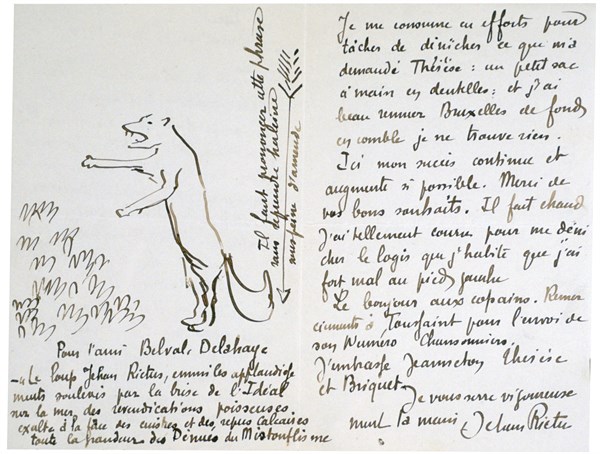 Il faut prononcer cette phrase
sans reprendre haleine
sous peine d'amende
Pour l'ami Belval-Delahaye
"Le Loup Jehan Rictus, emmi les applaudisse
ments soulevés par la brise de l'Idéal
sur la mer des revendications poisseuses
exalte à la face des cuistres et des repus calcaires
toute la grandeur des Dénués du Mistouflisme
Je me consume en efforts pour
tâcher de dénicher ce que m'a
demandé Thérèse : un petit sac
à main en dentelles : et j'ai
beau remuer Bruxelles de fond
en comble je ne trouve rien.
Ici mon succès continue et
augmente si possible. Merci de
vos bons souhaits. Il fait chaud
J'ai tellement couru pour me déni
cher le logis que j'habite que j'ai
fort mal au pied gauche
Le bonjour aux copains. Remer
ciements à Toussaint pour l'envoi de
son Numéro Chansonniers.
J'embrasse Jeanneton Thérèse
et Briquet.
Je vous serre vigoureuse
ment la main Jehan Rictus